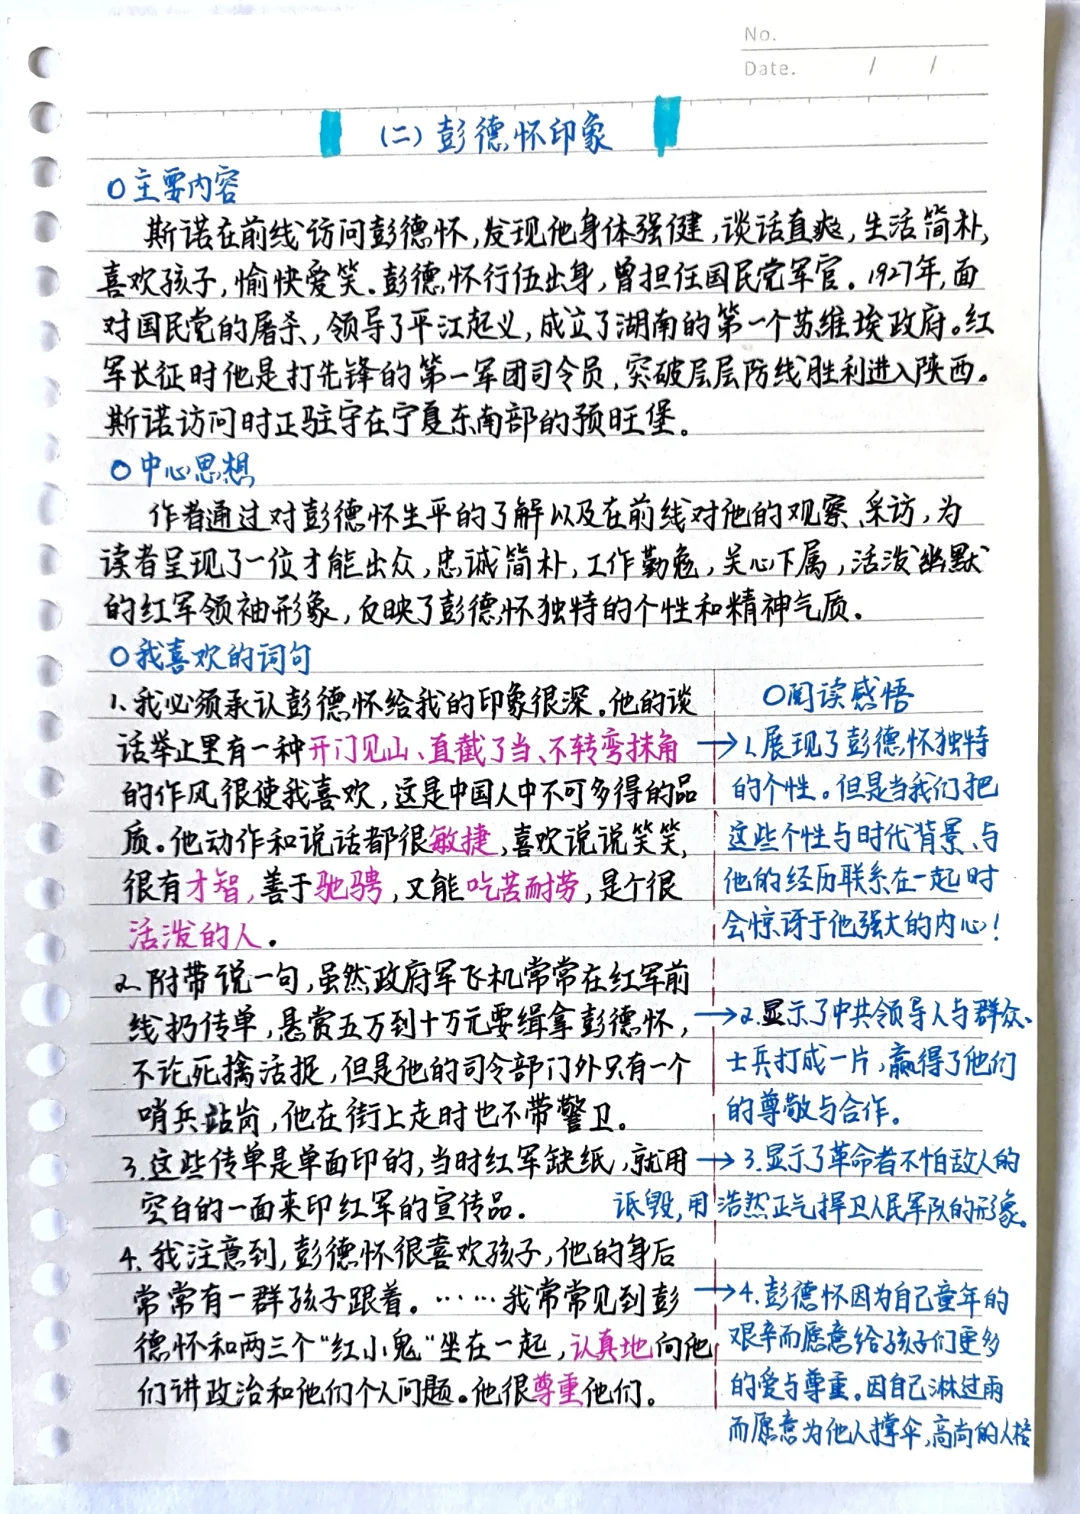 No.
Date. / /
(二)彭德怀印象
○主要内容
斯诺在前线访问彭德怀,发现他身体强健,谈话直爽,生活简朴,
喜欢孩子,愉快爱笑.彭德怀行伍出身,曾担任国民党军官.1927年,面
对国民党的屠杀,领导了平江起义,成立了湖南的第一个苏维埃政府。红
军长征时他是打先锋的第一军团司令员,突破层层防线胜利进入陕西。
斯诺访问时正驻守在宁夏东南部的预旺堡。
○中心思想
作者通过对彭德怀生平的了解以及在前线对他的观察、采访,为
读者呈现了一位才能出众,忠诚简朴,工作勤勉,关心下属,活泼幽默
的红军领袖形象,反映了彭德怀独特的个性和精神气质.
○我喜欢的词句
1.我必须承认彭德怀给我的印象很深.他的谈
话举止里有一种开门见山、直截了当、不转弯抹角
的作风很使我喜欢,这是中国人中不可多得的品
质。他动作和说话都很敏捷,喜欢说说笑笑,
很有才智,善于驰骋,又能吃苦耐劳,是个很
活泼的人.
2.附带说一句,虽然政府军飞机常常在红军前
线扔传单,悬赏五万到十万元要缉拿彭德怀,
不论死擒活捉,但是他的司令部门外只有一个
哨兵站岗,他在街上走时也不带警卫。
3.这些传单是单面印的,当时红军缺纸,就用
空白的一面来印红军的宣传品.
4.我注意到,彭德怀很喜欢孩子,他的身后
常常有一群孩子跟着。……我常常见到彭
德怀和两三个"红小鬼"坐在一起,认真地向他
们讲政治和他们个人问题。他很尊重他们。
○阅读感悟
→1.展现了彭德怀独特
的个性。但是当我们把
这些个性与时代背景、与
他的经历联系在一起时
会惊讶于他强大的内心!
→2.显示了中共领导人与群众、
士兵打成一片,赢得了他们
的尊敬与合作。
→3.显示了革命者不怕敌人的
诋毁,用浩然正气捍卫人民军队的形象。
→4.彭德怀因为自己童年的
艰辛而愿意给孩子们更多
的爱与尊重。因自己淋过雨
而愿意为他人撑伞,高尚的人格